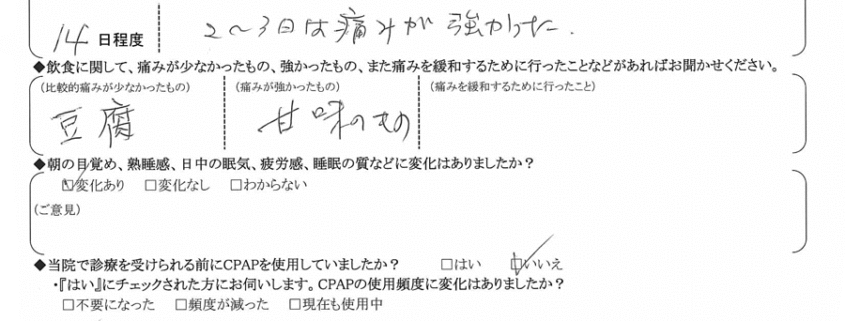 14日程度 2～3日は痛みが強かった.
◆飲食に関して、痛みが少なかったもの、強かったもの、また痛みを緩和するために行ったことなどがあればお聞かせください。
(比較的痛みが少なかったもの) (痛みが強かったもの) (痛みを緩和するために行ったこと)
豆腐 甘味のもの
◆朝の目覚め、熟睡感、日中の眠気、疲労感、睡眠の質などに変化はありましたか？
☑変化あり □変化なし □わからない
(ご意見)
◆当院で診療を受けられる前にCPAPを使用していましたか？ □はい ☑いいえ
・『はい』にチェックされた方にお伺いします。CPAPの使用頻度に変化はありましたか？
□不要になった □頻度が減った □現在も使用中